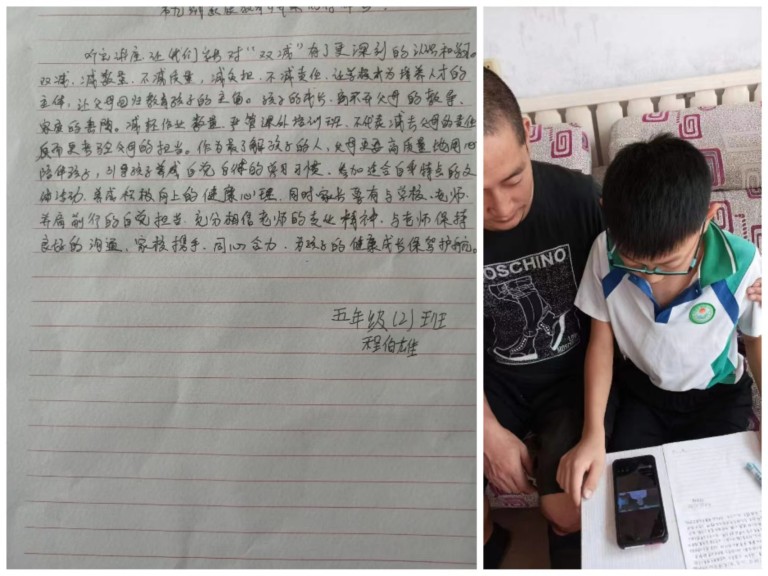 听完讲座让我们家长对“双减”有了更深刻的认识和
双减，减数量，不减质量，减负担，不减责任，让学校成为培养人才的
主体，让父母回归教育孩子的主角。孩子的成长，离不开父母的教导，
家庭的熏陶。减轻作业数量，严管课外培训班，不代表减去父母的责任
反而更考验父母的担当。作为最了解孩子的人，父母更要高质量地用心
陪伴孩子，引导孩子养成自觉自律的学习习惯，参加适合自身特点的文
体活动，养成积极向上的健康心理，同时家长要有与学校、老师，
并肩前行的自觉担当，充分相信老师的专业精神，与老师保持
良好的沟通，家校携手，同心合力，为孩子的健康成长保驾护航。
五年级(2)班
程伯雄
OSCHINO